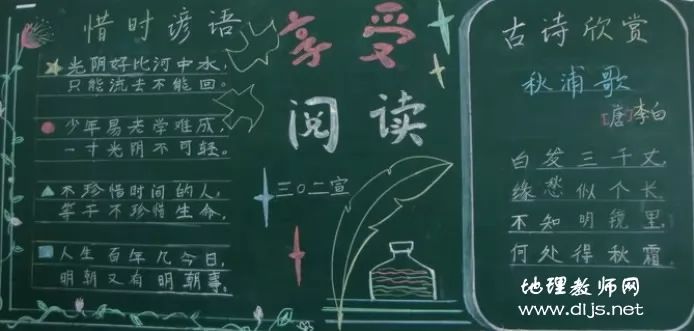 惜时谚语
光阴好比河中水，
只能流去不能回。
少年易老学难成，
一寸光阴不可轻。
不珍惜时间的人，
等于不珍惜生命，
人生百年几今日，
明朝又有明朝事，
享受
阅读
三〇二宣
古诗欣赏
秋浦歌
[唐]李白
白发三千丈，
缘愁似个长
不知明镜里，
何处得秋霜
地理教师网
www.dljs.net